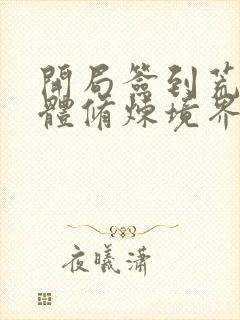 開局簽到荒
體脩煉境界
夜曦瀟